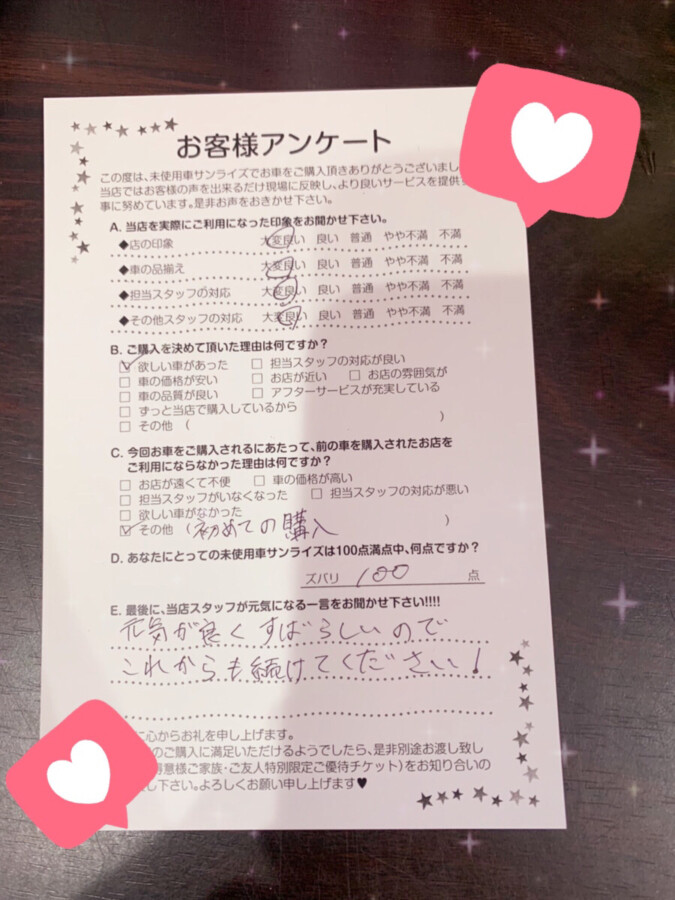 お客様アンケート
この度は、未使用車サンライズでお車をご購入頂きありがとうございまし
当店ではお客様の声を出来るだけ現場に反映し、より良いサービスを提供
事に努めています。是非お声をおきかせ下さい。
A. 当店を実際にご利用になった印象をお聞かせ下さい。
◆店の印象 大変良い 良い 普通 やや不満 不満
◆車の品揃え 大変良い 良い 普通 やや不満 不満
◆担当スタッフの対応 大変良い 良い 普通 やや不満 不満
◆その他スタッフの対応 大変良い 良い 普通 やや不満 不満
B. ご購入を決めて頂いた理由は何ですか？
☑ 欲しい車があった □ 担当スタッフの対応が良い
□ 車の価格が安い □ お店が近い □ お店の雰囲気が
□ 車の品質が良い □ アフターサービスが充実している
□ ずっと当店で購入しているから
□ その他（ ）
C. 今回お車をご購入されるにあたって、前の車を購入されたお店を
ご利用にならなかった理由は何ですか？
□ お店が遠くて不便 □ 車の価格が高い
□ 担当スタッフがいなくなった □ 担当スタッフの対応が悪い
□ 欲しい車がなかった
☑ その他（初めての購入 ）
D. あなたにとっての未使用車サンライズは100点満点中、何点ですか？
ズバリ 100 点
E. 最後に、当店スタッフが元気になる一言をお聞かせ下さい!!!!
元気が良くすばらしいので
これからも続けてください！
に心からお礼を申し上げます。
のご購入に満足いただけるようでしたら、是非別途お渡し致し
得意様ご家族・ご友人特別限定ご優待チケット）をお知り合いの
し下さい。よろしくお願い申し上げます♥